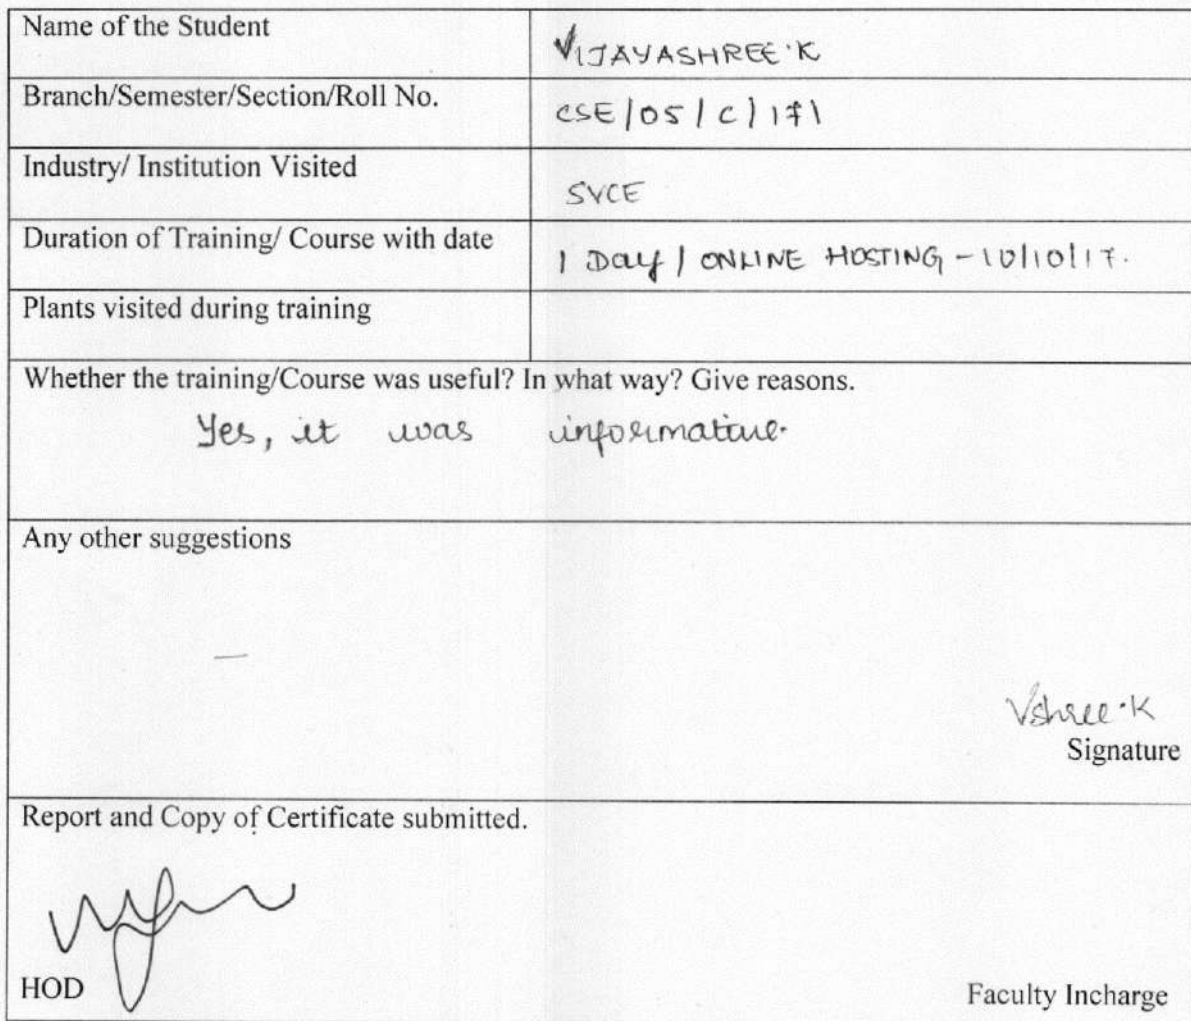 Name of the Student VIJAYASHREE.K
Branch/Semester/Section/Roll No. CSE/05/C/171
Industry/ Institution Visited SVCE
Duration of Training/ Course with date 1 Day / ONLINE HOSTING - 10/10/17.
Plants visited during training
Whether the training/Course was useful? In what way? Give reasons.
Yes, it was informative.
Any other suggestions
—
Vshree.K
Signature
Report and Copy of Certificate submitted.
HOD Faculty Incharge